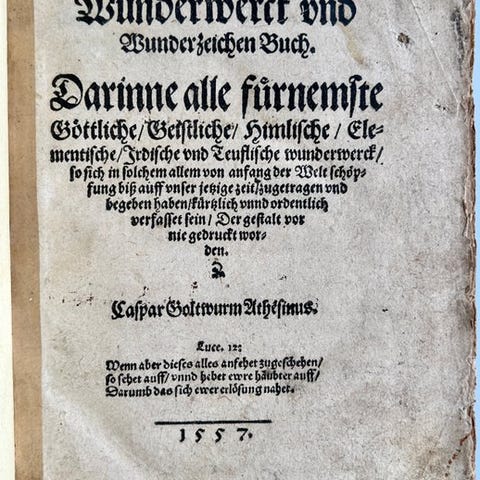 Wunderwerck vnd
Wunderzeichen Buch.
Darinne alle fürnemste
Göttliche/Geistliche/Himlische/Ele-
mentische/Irdische vnd Teuflische wunderwerck/
so sich in solchem allem von anfang der Welt schöp-
fung biß auff vnser jetzige zeit/zugetragen vnd
begeben haben/kürtzlich vnnd ordentlich
verfasset sein/Der gestalt vor
nie gedruckt wor-
den.
Caspar Goltwurm Athesinus.
Lucc. 12:
Wenn aber dieses alles anfehet zugeschehen/
so sehet auff/vnnd hebet ewre häubter auff/
Darumb das sich ewer erlösung nahet.
1557.